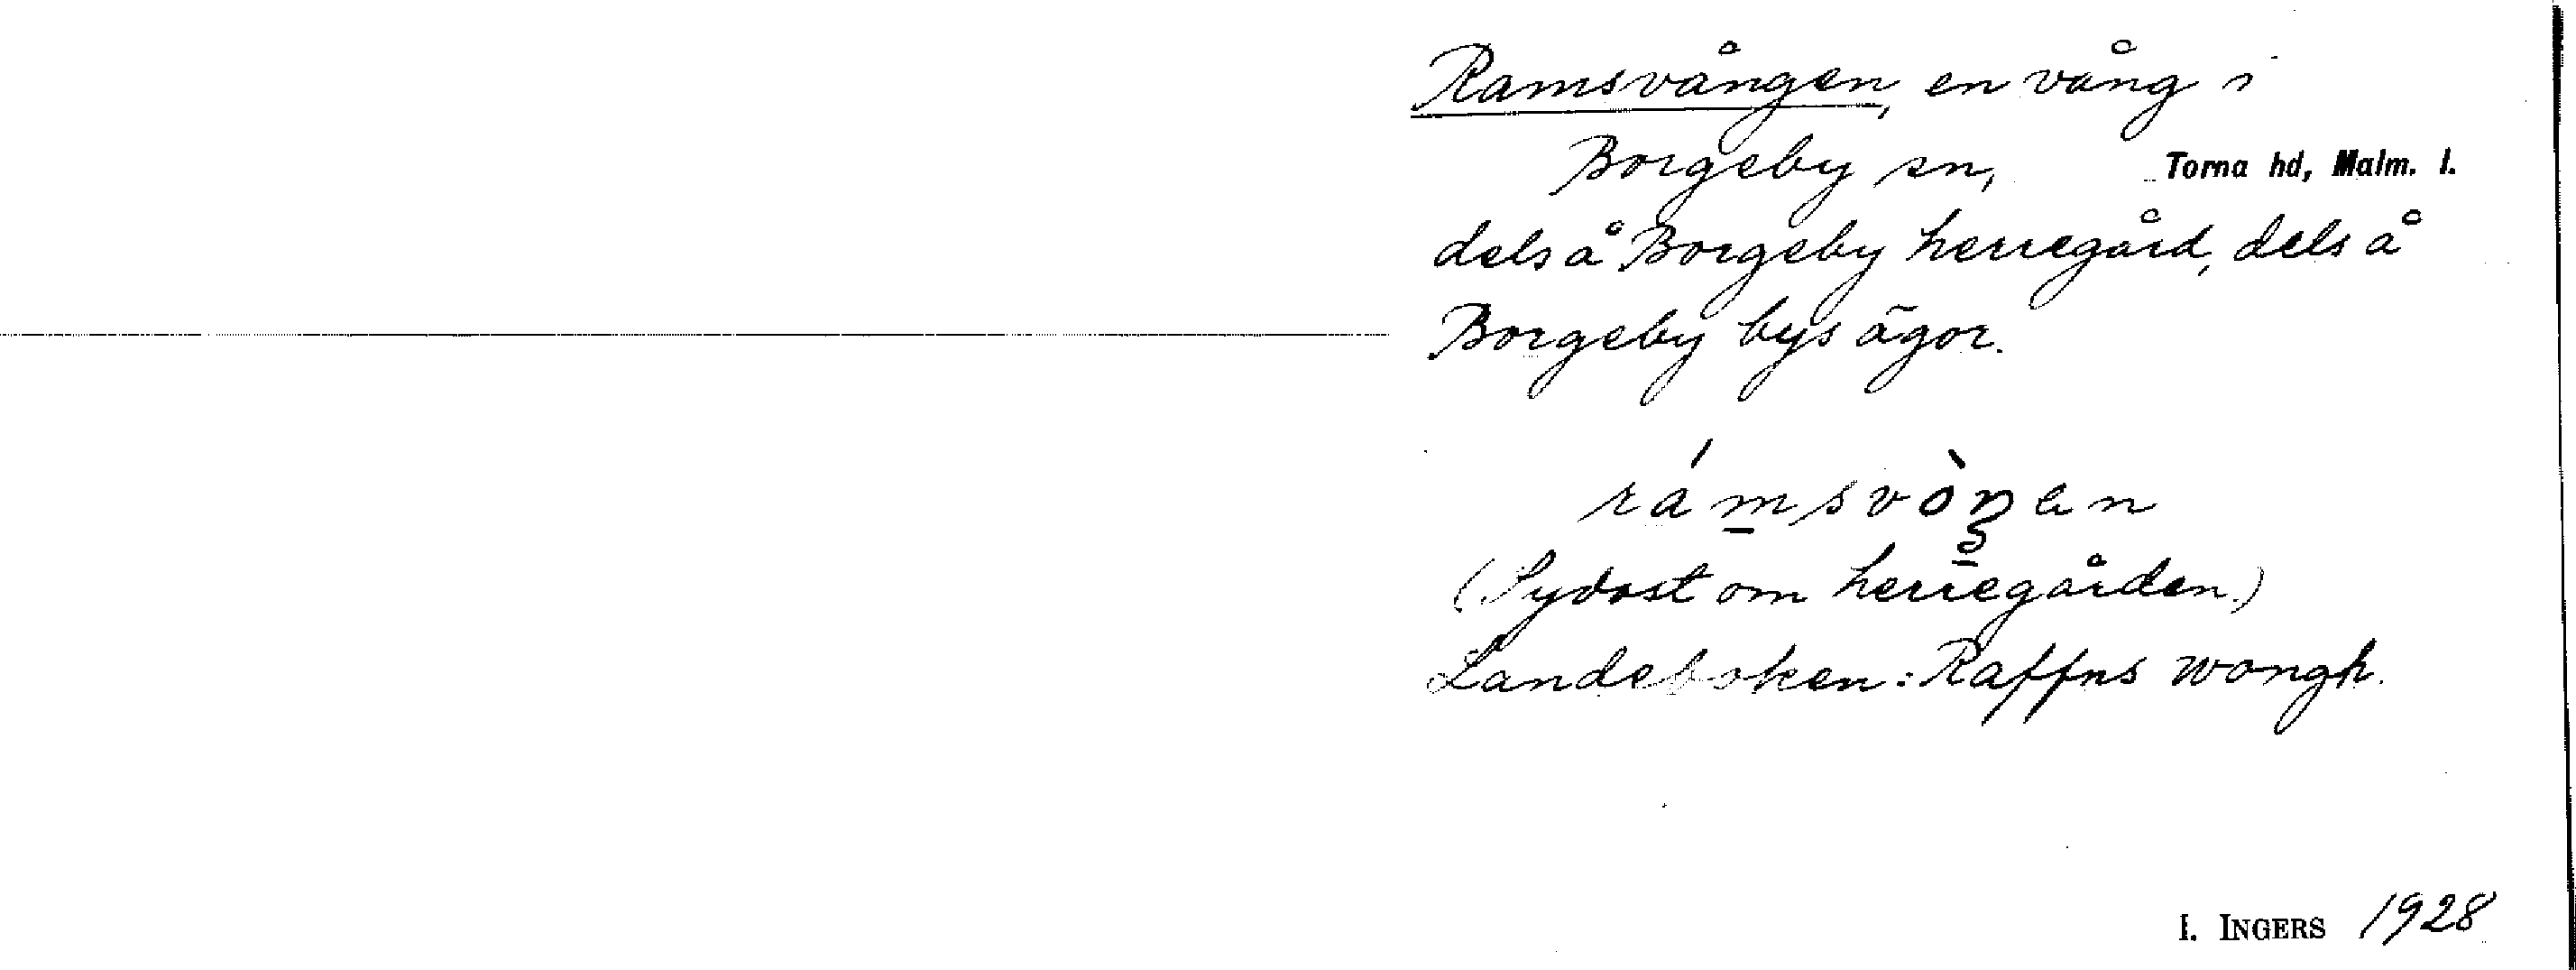 Ramsvången, en vång i
Borgeby sn, Torna hd, Malm. l.
dels å Borgeby herregård, dels å
Borgeby bys ägor.
rámsvòŋen
(Sydost om herregården.)
Landeboken: Raffns wongh.
I. INGERS 1928